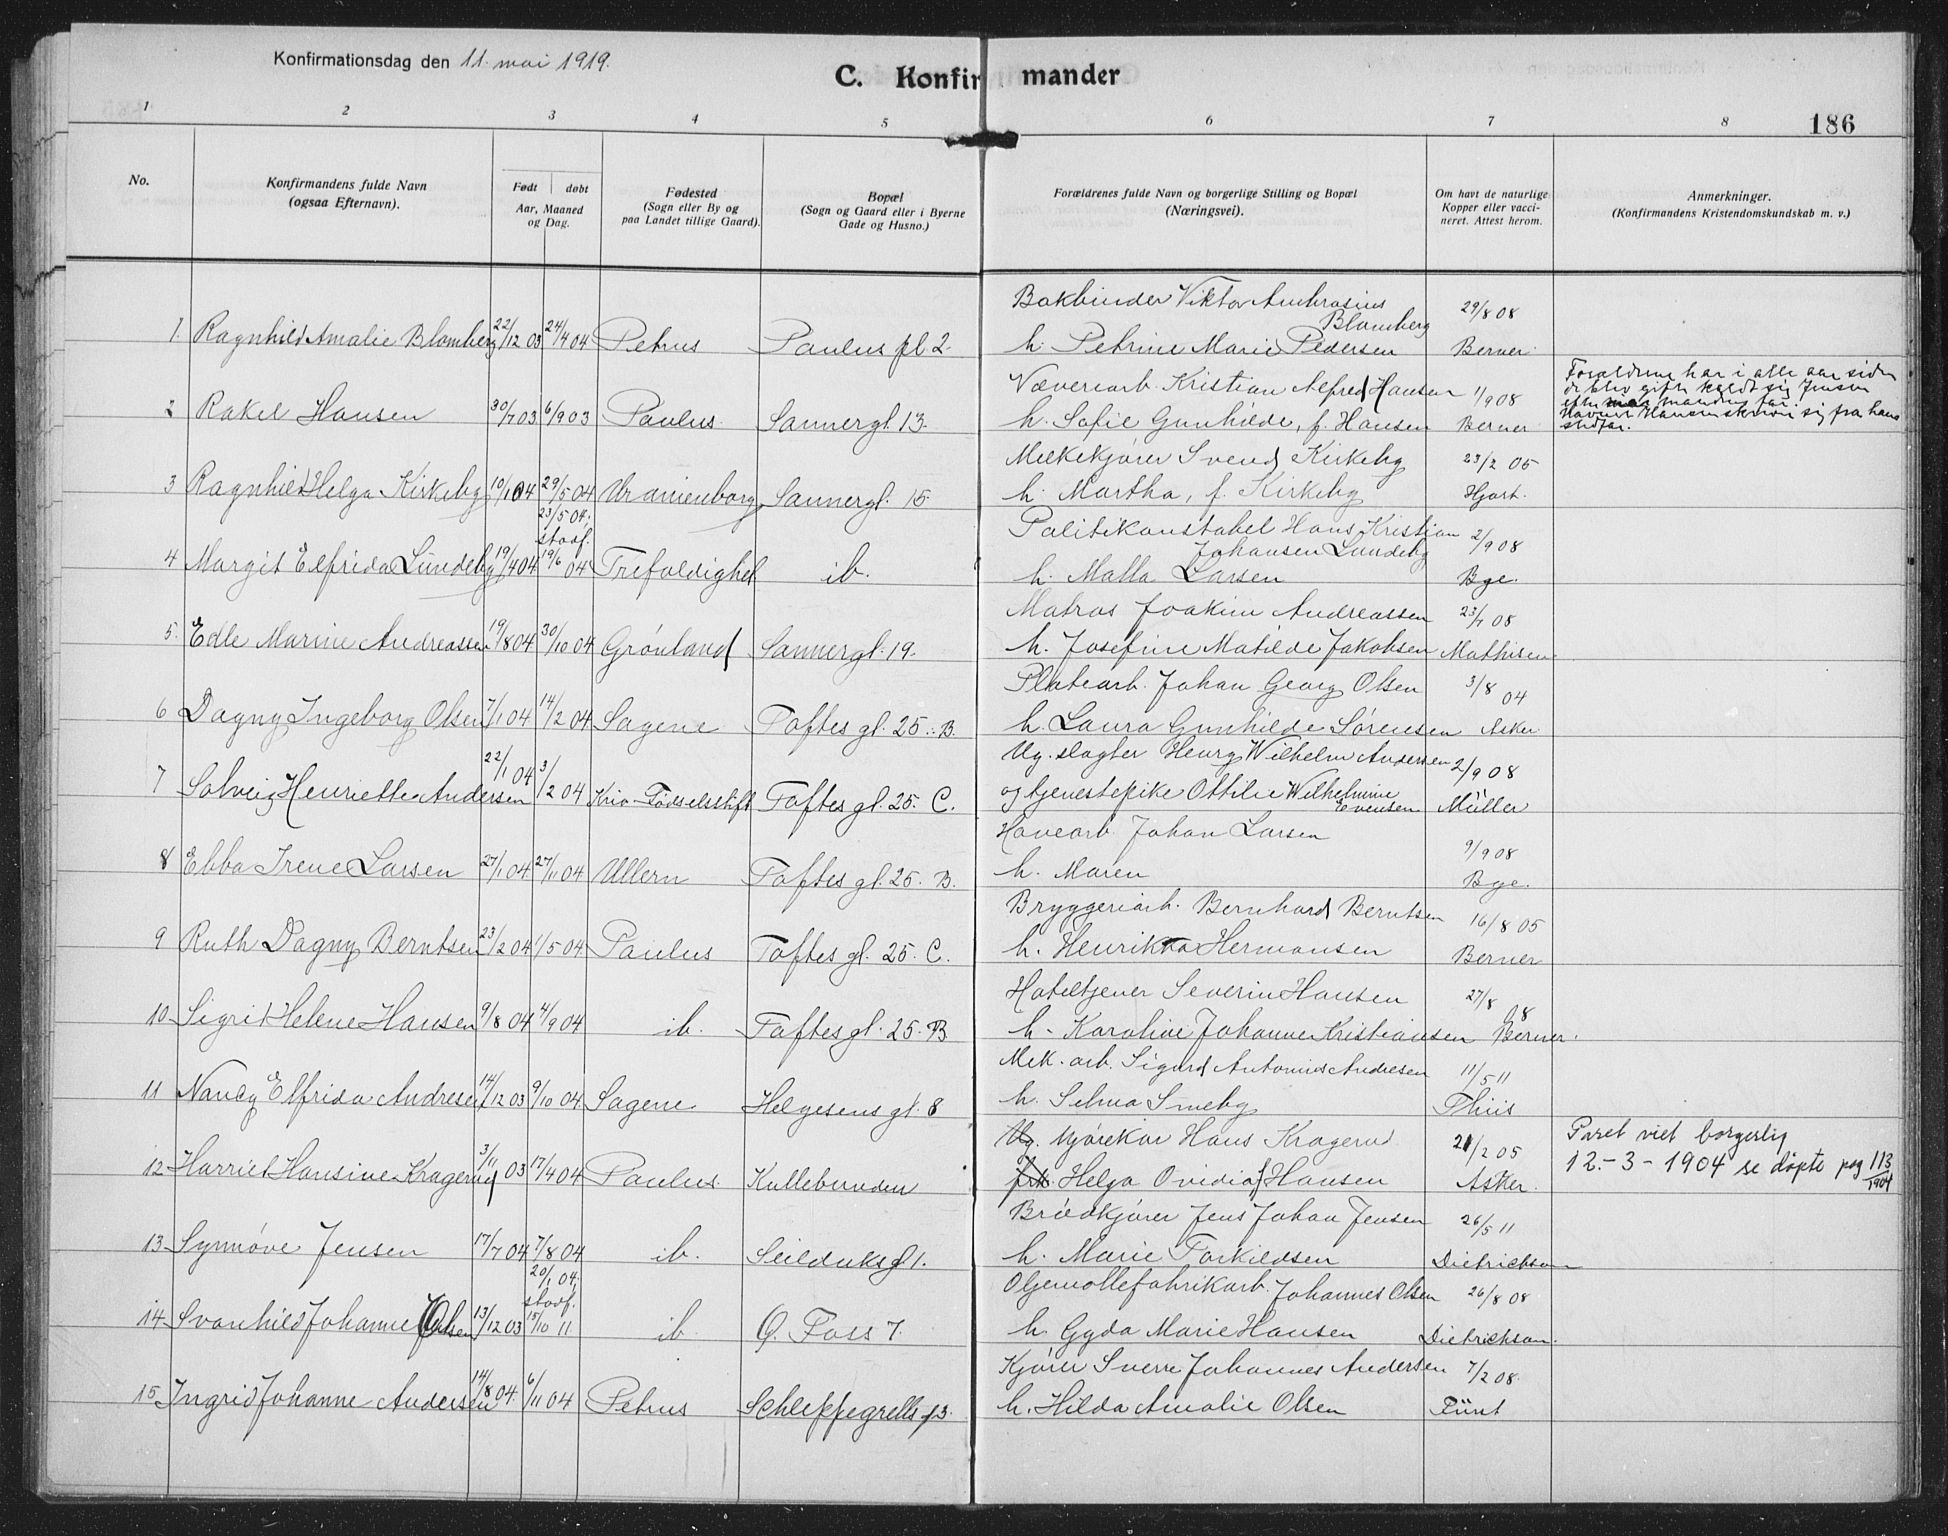 Konfirmationsdag den 11. mai 1919.
C. Konfirmander
186
1 2 3 4 5 6 7 8
No.
Konfirmandens fulde Navn
(ogsaa Efternavn).
Født døbt
Aar, Maaned
og Dag.
Fødested
(Sogn eller By og
paa Landet tillige Gaard).
Bopæl
(Sogn og Gaard eller i Byerne
Gade og Husno.)
Forældrenes fulde Navn og borgerlige Stilling og Bopæl
(Næringsvei).
Om havt de naturlige
Kopper eller vacci-
neret. Attest herom.
Anmerkninger.
(Konfirmandens Kristendomskundskab m. v.)
Bokbinder Viktor Ambrosius 29/8 08
Blomberg
1. Ragnhild Amalie Blomberg 22/12 03 24/4 04 Petrus Paulus pl. 2. h. Petrine Marie Pedersen Berner.
Væveriarb. Kristian Alfred Hansen 1/9 08 Forældrene har i alle aar siden
de blev gift kaldt sig Jensen
efter mandens far.
2 Rakel Hansen 30/7 03 6/9 03 Paulus Sannergt. 13. h. Sofie Gunhilde, f. Hansen Berner Navnet Hansen skriver sig fra hans
stedfar.
Melkekjører Svend Kirkeby 23/2 05
3 Ragnhild Helga Kirkeby 10/1 04 29/5 04 Uranienborg Sannergt. 15. h. Martha, f. Kirkeby Hjort.
23/5 04.
stadf.
Politikonstabel Hans Kristian 2/9 08
Johansen Lundeby
4 Margit Elfrida Lundeby 19/4 04 19/6 04 Trefoldighet ib. h. Malla Larsen Bge.
Matros Joakim Andreassen 23/7 08
5. Edle Marine Andreassen 19/8 04 30/10 04 Grønland Sannergt. 19. h. Josefine Matilde Jakobsen Mathisen
Platearb. Johan Georg Olsen 3/8 04
6 Dagny Ingeborg Olsen 7/1 04 14/2 04 Sagene Toftes gt. 25. B. h. Laura Gunhilde Sørensen Asker.
Ug. slagter Henry Wilhelm Andersen 2/9 08
7 Solveig Henriette Andersen 22/1 04 3/2 04 Kria Fødselsstift Toftes gt. 25. C. og tjenestepike Ottilie Wilhelmine
Evensen Müller
Havearb. Johan Larsen 9/9 08
8 Ebba Irene Larsen 27/1 04 27/11 04 Ullern Toftes gt. 25. B. h. Maren Bge.
Bryggeriarb. Bernhard Berntsen 16/8 05
9 Ruth Dagny Berntsen 23/2 04 1/5 04 Paulus Toftes gt. 25. C. h. Henrikka Hermansen Berner
Hoteltjener Severin Hansen 27/8 08
10 Sigrid Helene Hansen 9/8 04 4/9 04 ib. Toftes gt. 25. B h. Karoline Johanne Kristiansen Berner.
Mek. arb. Sigurd Antonius Andresen 11/5 11
11 Nancy Elfrida Andresen 14/12 03 9/10 04 Sagene Helgesens gt. 8 h. Selma Smeby Thiis
Ug. kjørekar Hans Kragerud 21/2 05 Paret viet borgerlig
12 Harriet Hansine Kragerud 3/11 03 17/4 04 Paulus Kullebunden frk. Helga Ovidia f. Hansen Asker. 12.-3-1904 se døpte pag 113/1904
Brødkjører Jens Johan Jensen 26/5 11
13 Synnøve Jensen 17/7 04 7/8 04 ib. Seilduksgt 1. h. Marie Torkildsen Dietrichson
20/1 04.
stadf.
Oljemøllefabrikarb. Johannes Olsen 26/8 08
14 Svanhild Johanne Olsen 13/12 03 15/10 11 ib. Ø. Foss 7. h. Gyda Marie Hansen Dietrichson.
Kjører Sverre Johannes Andersen 7/2 08
15 Ingrid Johanne Andersen 14/8 04. 6/11 04 Petrus Schleppegrells gt 3. h. Hilda Amalie Olsen